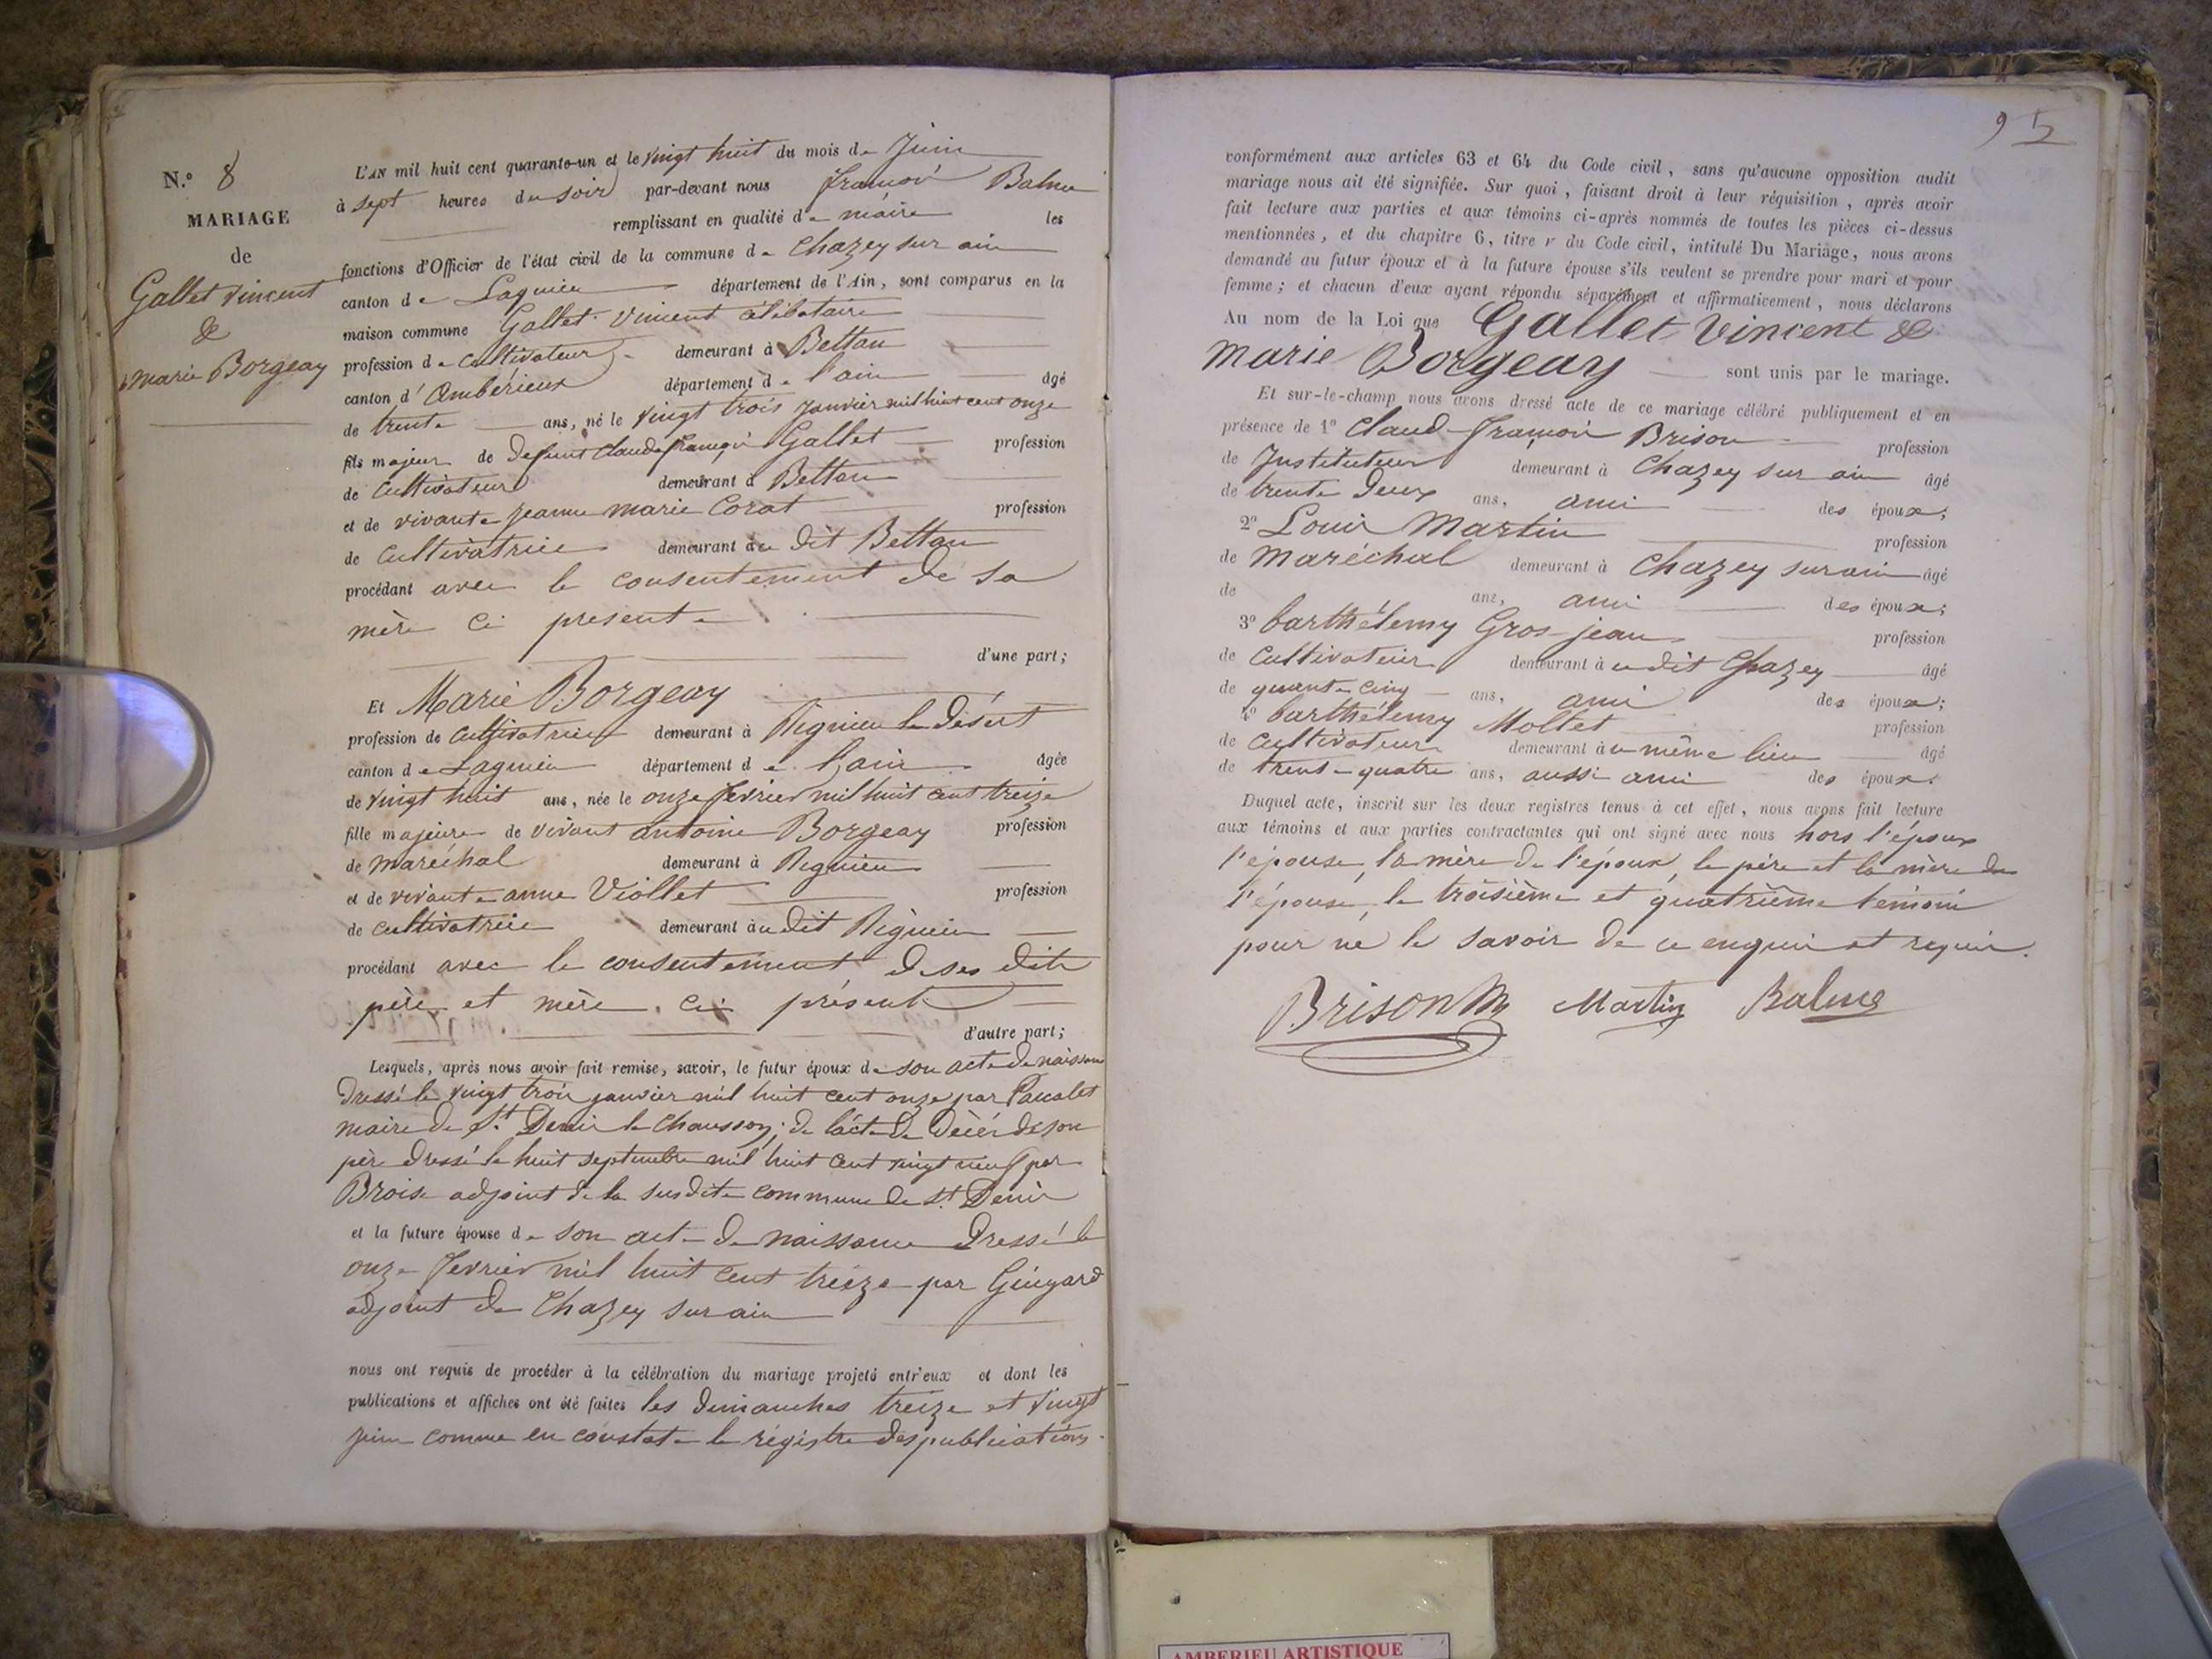 N.º 8
MARIAGE
de
Gallet Vincent
&
marie Borgeay
L'AN mil huit cent quarante-un et le vingt huit du mois de Juin
à sept heures du soir par-devant nous françois Balme
remplissant en qualité de maire les
fonctions d'Officier de l'état civil de la commune de Chazey sur ain
canton de Lagnieu département de l'Ain, sont comparus en la
maison commune Gallet Vincent célibataire
profession de cultivateur demeurant à Bettan
canton d'Ambérieux département de l'ain âgé
de trente ans, né le vingt trois janvier mil huit cent onze
fils majeur de defunt Claude françois Gallet profession
de cultivateur demeurant à Bettan
et de vivante jeanne marie Corat profession
de cultivatrice demeurant au dit Bettan
procédant avec le consentement de sa
mère ci presente
d'une part;
Et Marie Borgeay
profession de cultivatrice demeurant à Rignieu le désert
canton de Lagnieu département de l'ain âgée
de vingt huit ans, née le onze fevrier mil huit cent treize
fille majeure de vivant antoine Borgeay profession
de maréchal demeurant à Rignieu
et de vivante anne Viollet profession
de cultivatrice demeurant au dit Rignieu
procédant avec le consentement de ses dits
père et mère ci présents
d'autre part;
Lesquels, après nous avoir fait remise, savoir, le futur époux de son acte de naissance
dressé le vingt trois janvier mil huit cent onze par
maire de St Denis le Chausson; de l'acte de décès de son
père dressé le huit septembre mil huit cent vingt neuf par
Broise adjoint de la susdite commune de St Denis
et la future épouse de son acte de naissance dressé le
onze fevrier mil huit cent treize par Guigard
adjoint de Chazey sur ain
nous ont requis de procéder à la célébration du mariage projeté entr'eux et dont les
publications et affiches ont été faites les dimanches treize et vingt
juin comme en constate le régistre des publications.
95
conformément aux articles 63 et 64 du Code civil, sans qu'aucune opposition audit
mariage nous ait été signifiée. Sur quoi, faisant droit à leur réquisition, après avoir
fait lecture aux parties et aux témoins ci-après nommés de toutes les pièces ci-dessus
mentionnées, et du chapitre 6, titre v du Code civil, intitulé Du Mariage, nous avons
demandé au futur époux et à la future épouse s'ils veulent se prendre pour mari et pour
femme; et chacun d'eux ayant répondu séparément et affirmativement, nous déclarons
Au nom de la Loi que Gallet Vincent &
marie Borgeay sont unis par le mariage.
Et sur-le-champ nous avons dressé acte de ce mariage célébré publiquement et en
présence de 1º Claud françois Brison profession
de Instituteur demeurant à Chazey sur ain âgé
de trente deux ans, ami des époux;
2º Louis Martin profession
de maréchal demeurant à Chazey sur ain âgé
de ans, ami des époux;
3º barthélemy Gros jean profession
de cultivateur demeurant à u dit Chazey âgé
de quarante cinq ans, ami des époux;
4º barthélemy Mollet profession
de cultivateur demeurant à u même lieu âgé
de trente quatre ans, aussi ami des époux.
Duquel acte, inscrit sur les deux registres tenus à cet effet, nous avons fait lecture
aux témoins et aux parties contractantes qui ont signé avec nous hors l'époux
l'épouse, la mère de l'époux, le père et la mère de
l'épouse, le troisième et quatrième temoin
pour ne le savoir de ce enquis et requis.
Brison Martin Balme
AMBERIEU ARTISTIQUE